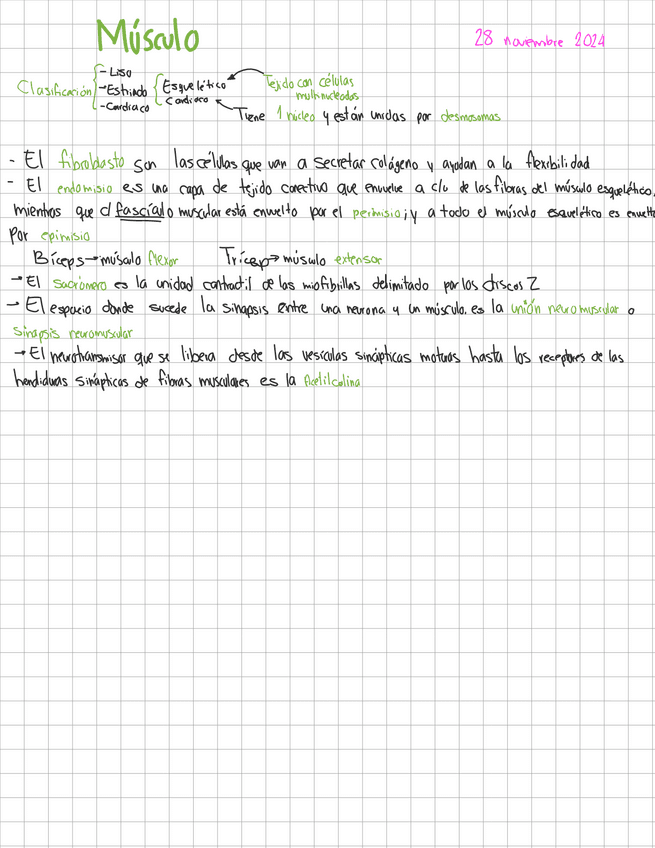 Músculo
28 noviembre 2024
Clasificación
- Liso
- Estriado
- Cardiaco
Esquelético
Cardiaco
Tejido con células
multinucleadas
Tiene 1 núcleo y están unidas por desmosomas
- El fibroblasto son las células que van a secretar colágeno y ayudan a la flexibilidad
- El endomisio es una capa de tejido conectivo que envuelve a c/u de las fibras del músculo esquelético,
mientras que c/ fascículo muscular está envuelto por el perimisio; y a todo el músculo esquelético es envuelto
por epimisio
Bíceps → músculo flexor
Tricep → músculo extensor
→ El sarcómero es la unidad contráctil de las miofibrillas delimitado por los discos Z
→ El espacio donde sucede la sinapsis entre una neurona y un músculo. es la unión neuromuscular o
sinapsis neuromuscular
→ El neurotransmisor que se libera desde las vesículas sinápticas motoras hasta los receptores de las
hendiduras sinápticas de fibras musculares es la Acetilcolina